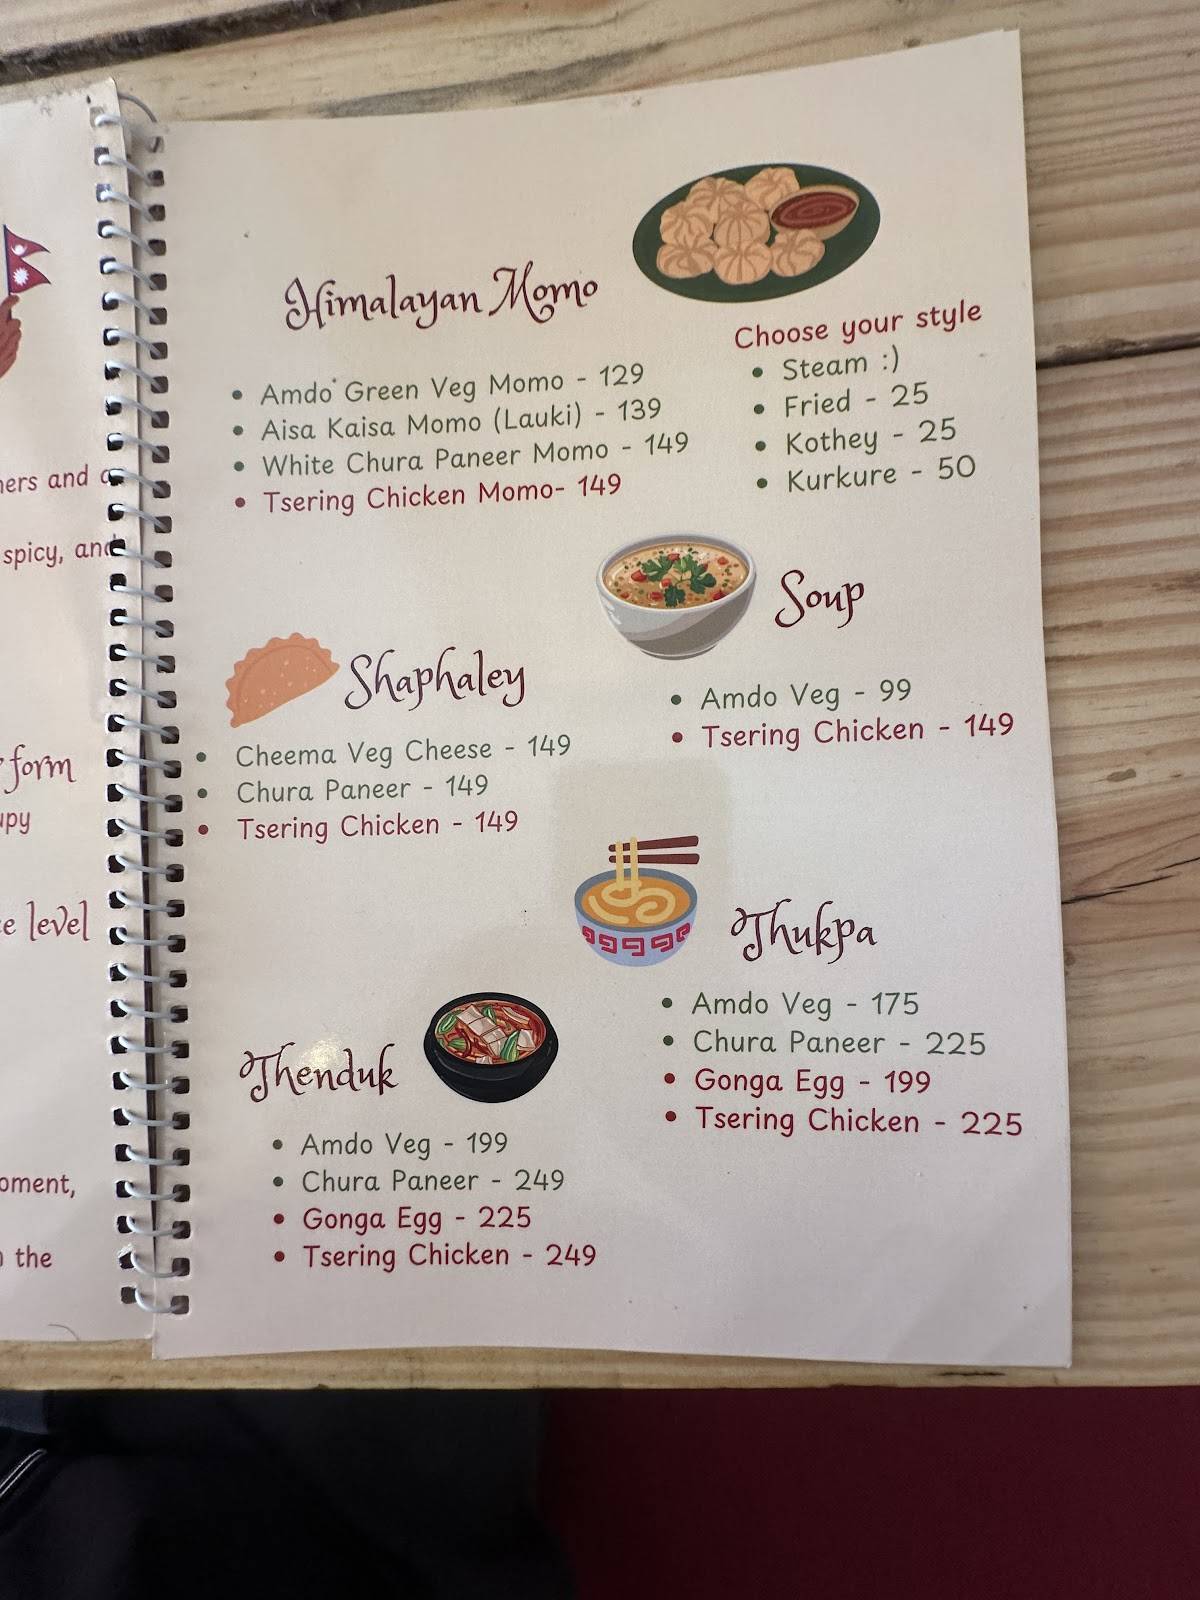 ners and a
spicy, and
form
upy
level
oment,
the
Himalayan Momo
Amdo Green Veg Momo - 129
Aisa Kaisa Momo (Lauki) - 139
White Chura Paneer Momo - 149
Tsering Chicken Momo- 149
Choose your style
Steam :)
Fried - 25
Kothey - 25
Kurkure - 50
Soup
Amdo Veg - 99
Tsering Chicken - 149
Shaphaley
Cheema Veg Cheese - 149
Chura Paneer - 149
Tsering Chicken - 149
Thukpa
Amdo Veg - 175
Chura Paneer - 225
Gonga Egg - 199
Tsering Chicken - 225
Thenduk
Amdo Veg - 199
Chura Paneer - 249
Gonga Egg - 225
Tsering Chicken - 249